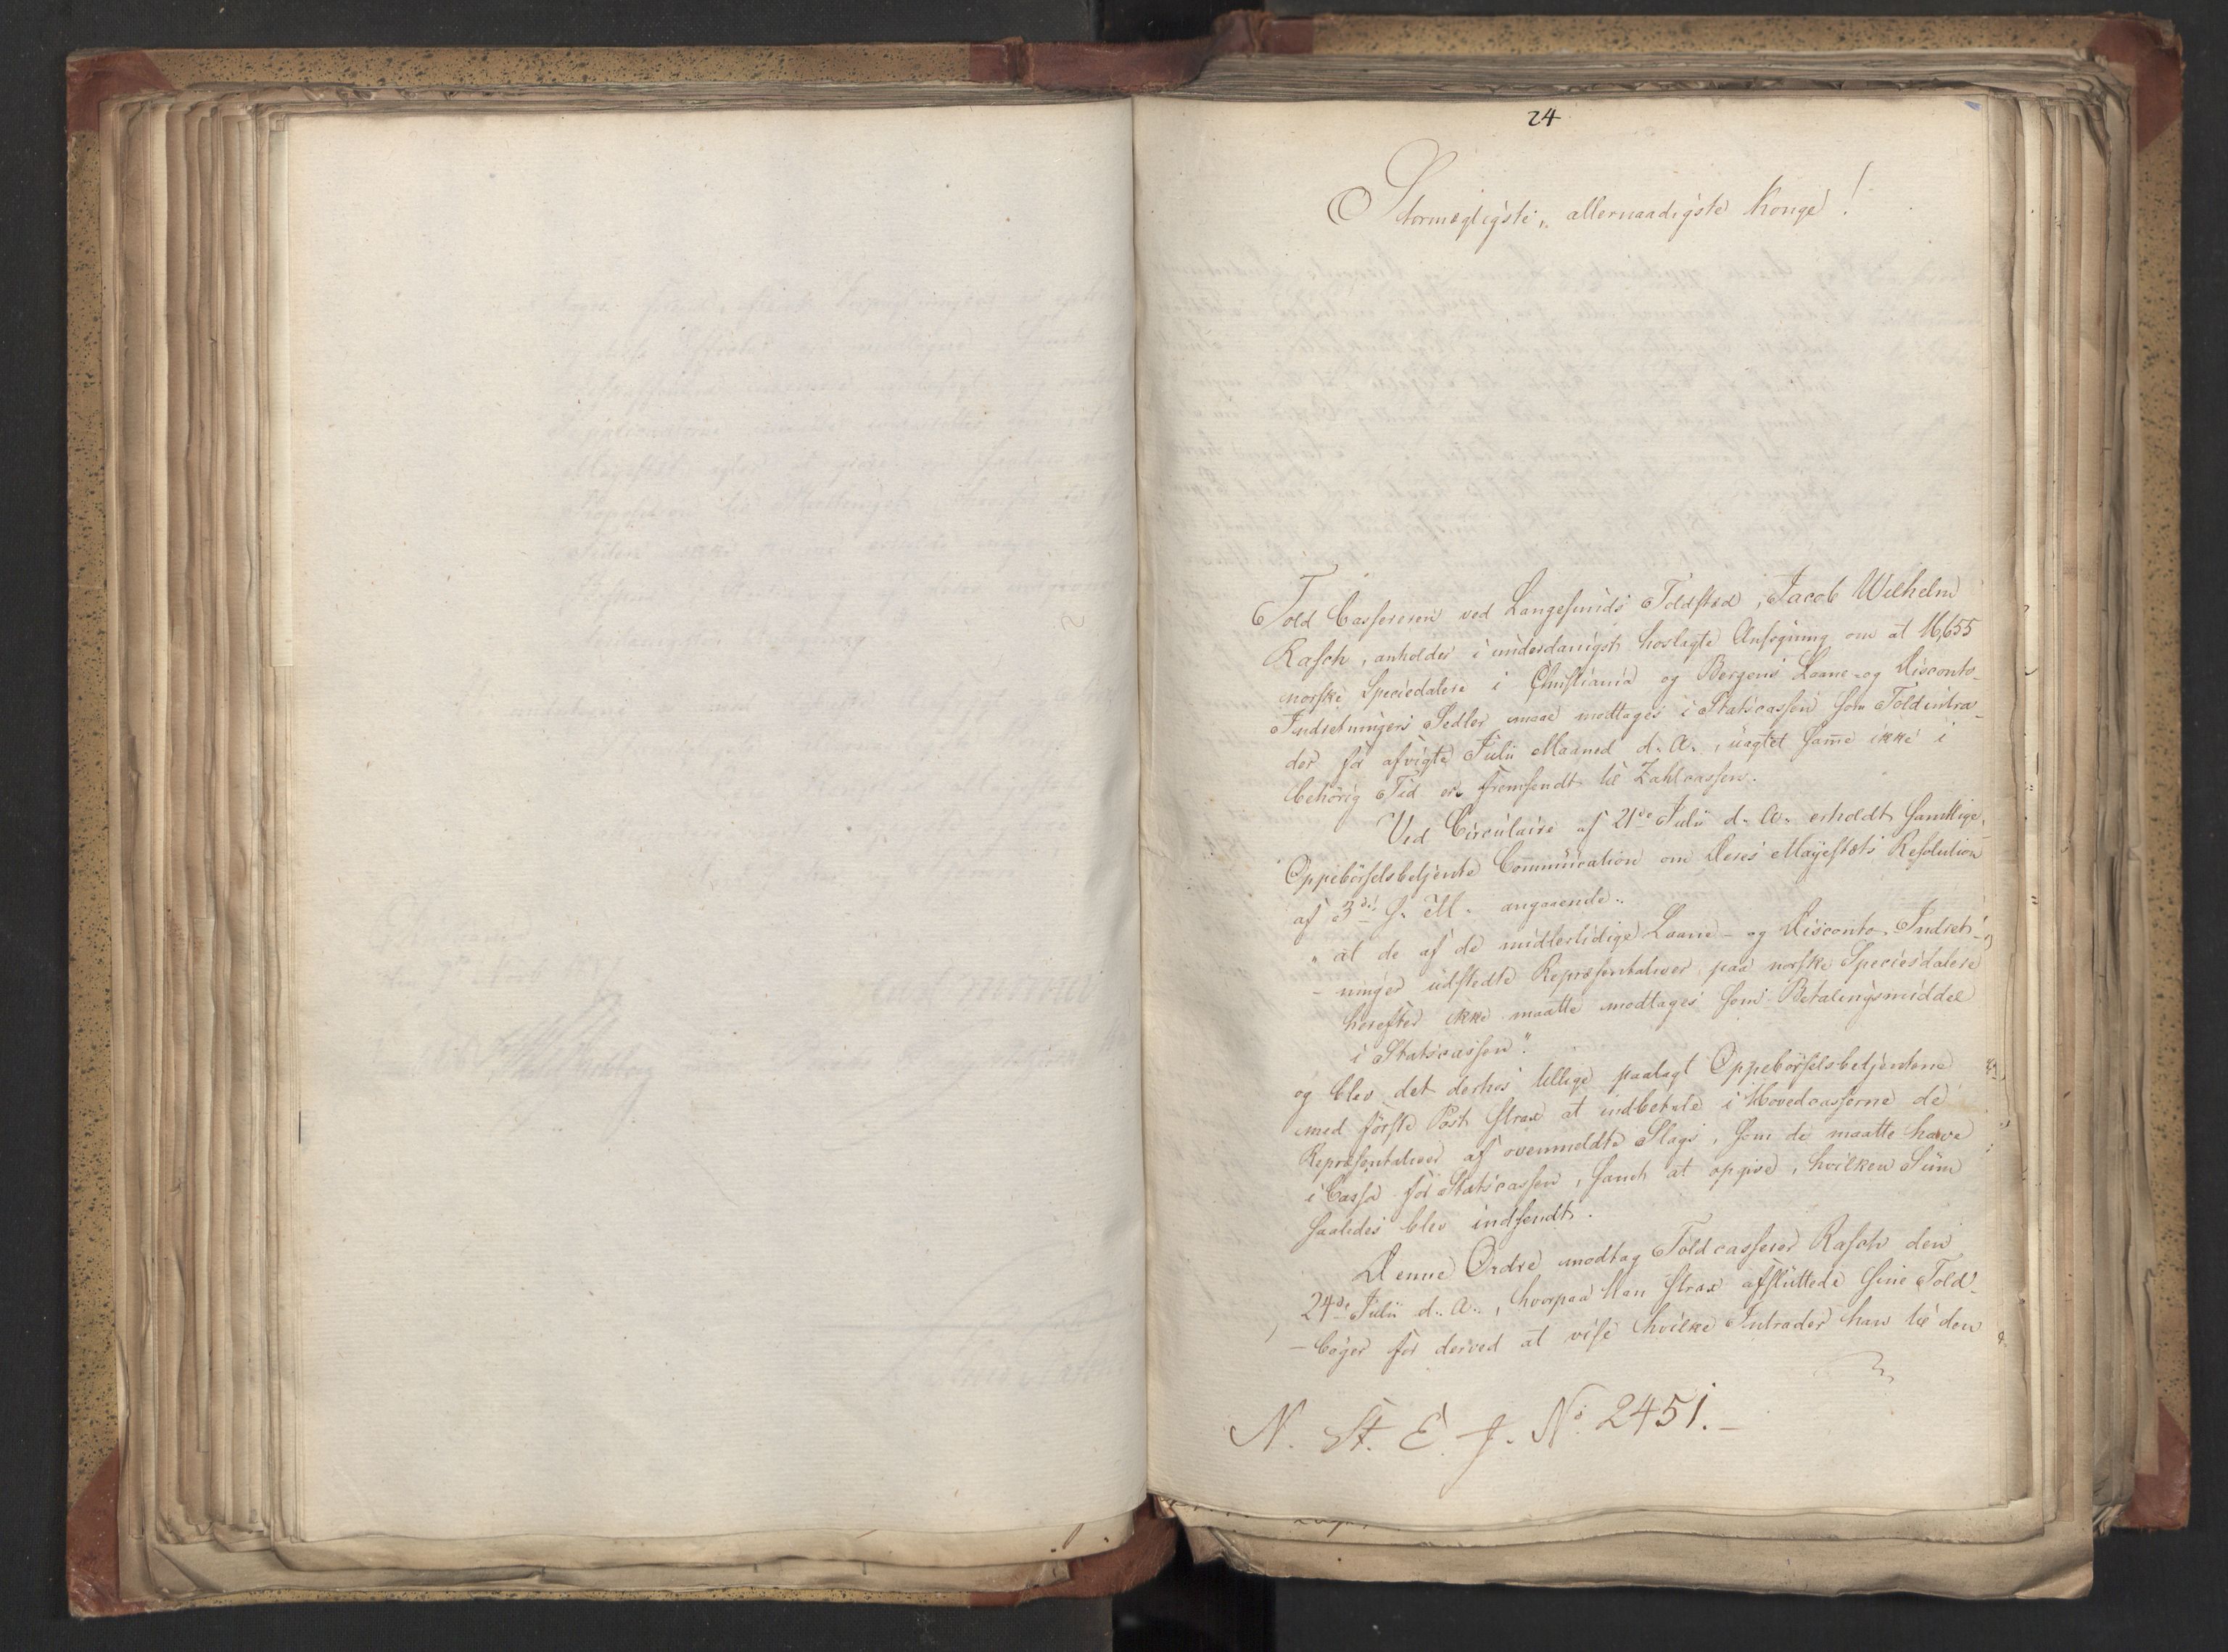 24
Stormægtigste, allernaadigste Konge!
Told Casserern ved Langesunds Toldsted, Jacob Wilhelm
Rasch, anholder i underdanigst hoslagte Ansøgning om at 16,655
norske Speciedalere i Christiania og Bergens Laane- og Disconto-
Indretningers Sedler maae modtages i Statscassen som Toldintra-
der for afvigte Julii Maaned d. A., uagtet same ikke i
behörig Tid er fremsendt til Zahlcassen.
Ved Circulaire af 21de Julii d. A. erholdt samtlige
Oppebörselsbetjente Communication om Deres Mayestæts Resolution
af 3die s. M. angaaende:
" at de af de midlertidige Laane- og Disconto-Indret-
- ninger udstedte Repræsentativer paa norske Speciesdalere
herefter ikke maatte modtages som Betalingsmiddel
i Statscassen".
og blev det derhos tillige paalagt Oppebörselsbetjentene
med förste Post strax at indbetale i Hovedcasserne de
Repræsentativer af ovenmeldte Slags, som de maatte have
i Cassa for Statscassen, samt at opgive, hvilken Sum
saaledes blev indsendt.
Denne Ordre modtog Toldcasserer Rasch den
24de Julii d. A., hvorpaa Han strax afsluttede sine Told-
- bøger for derved at vise hvilke Intrader han til den
N. St. E. J. No 2451.-